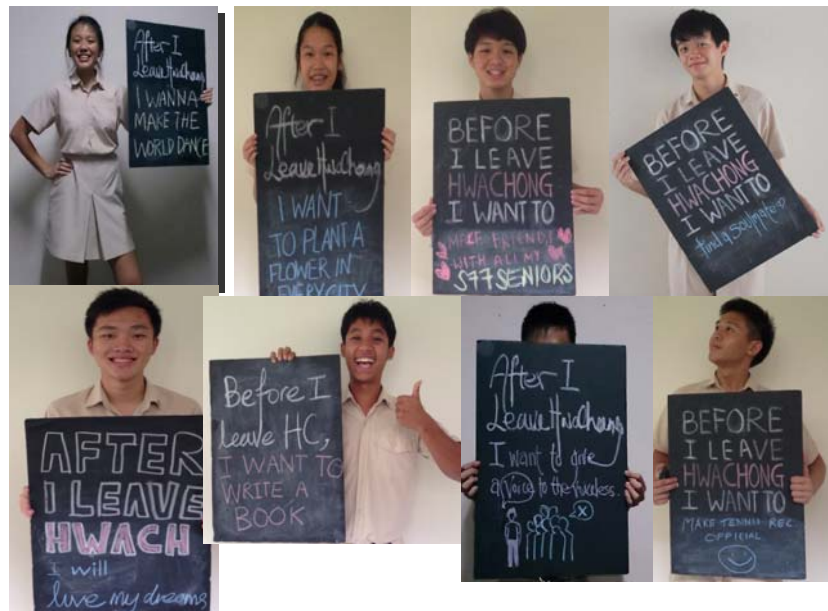 After I
Leave HwaChong
I WANNA
MAKE THE
WORLD DANCE
After I
Leave HwaChong
I WANT
TO PLANT A
FLOWER IN
EVERY CITY
BEFORE
I LEAVE
HWACHONG
I WANT TO
MAKE FRIENDS
WITH ALL MY
S77 SENIORS
BEFORE
I LEAVE
HWACHONG
I WANT TO
find a soulmate
AFTER
I LEAVE
HWACH
I will
live my dreams
Before I
leave HC,
I WANT TO
WRITE A
BOOK
After I
Leave HwaChong
I want to give
a voice to the voiceless.
X
BEFORE
I LEAVE
HWACHONG
I WANT TO
MAKE TENNIS REC
OFFICIAL